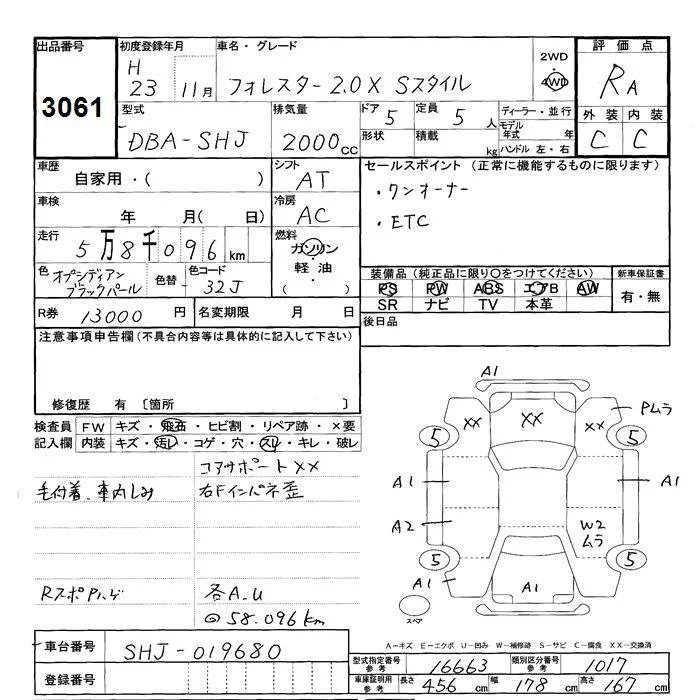 出品番号
3061
初度登録年月
H
23 11月
車名・グレード
フォレスター 2.0X Sスタイル
2WD
4WD
評価点
RA
外装 内装
C C
型式
DBA-SHJ
排気量
2000cc
ドア 5
形状
定員 5人
積載 kg
ディーラー・並行
モデル年式 年
ハンドル 左・右
車歴
自家用・( )
シフト
AT
車検
年 月( 日)
冷房
AC
走行
5万8千096km
燃料
ガソリン
軽油
( )
色
オブシディアン
ブラックパール
色替
色コード
32J
R券 13000円
名変期限 月 日
セールスポイント(正常に機能するものに限ります)
・ワンオーナー
・ETC
装備品(純正品に限り〇をつけてください)
PS PW ABS エアB AW
SR ナビ TV 本革
新車保証書
有・無
後日品
注意事項申告欄(不具合内容等は具体的に記入して下さい)
修復歴 有 〔箇所 〕
検査員記入欄
FW キズ・飛石・ヒビ割・リペア跡・×要
内装 キズ・汚レ・コゲ・穴・スレ・キレ・破レ
コアサポートXX
毛付着、車内しみ
右Fインパネ歪
RスポPハゲ
各A.U
@58.096km
A1
Pムラ
XX XX XX
5 5
A1 A1
A2
W2
ムラ
5 5
A1 A1
スペア
A-キズ E-エクボ U-凹み W-補修跡 S-サビ C-腐食 XX-交換済
車台番号
SHJ-019680
登録番号
型式指定番号 参考 16663
類別区分番号 参考 1017
車庫証明用 参考 長さ 456cm 幅 178cm 高さ 167cm